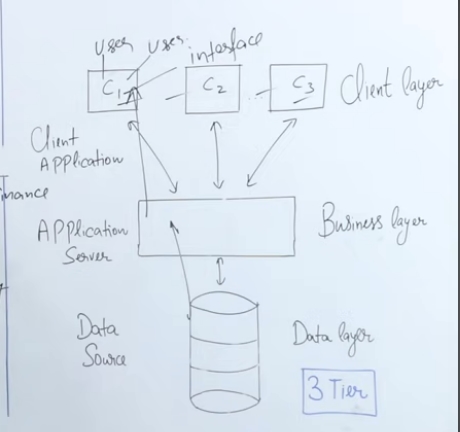 User User
interface
C1 C2 C3 Client layer
Client
APPlication
mance
APPlication
Server
Business layer
Data
Source
Data layer
3 Tier